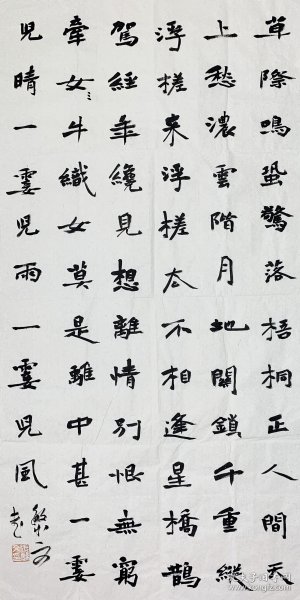 草際鳴蛩驚落梧桐正人間天
上愁濃雲階月地關鎖千重縱
浮槎来浮槎去不相逢星橋鵲
駕經年纔見想離情別恨無窮
牽女牛織女莫是離中甚一霎
兒晴一霎兒雨一霎兒風